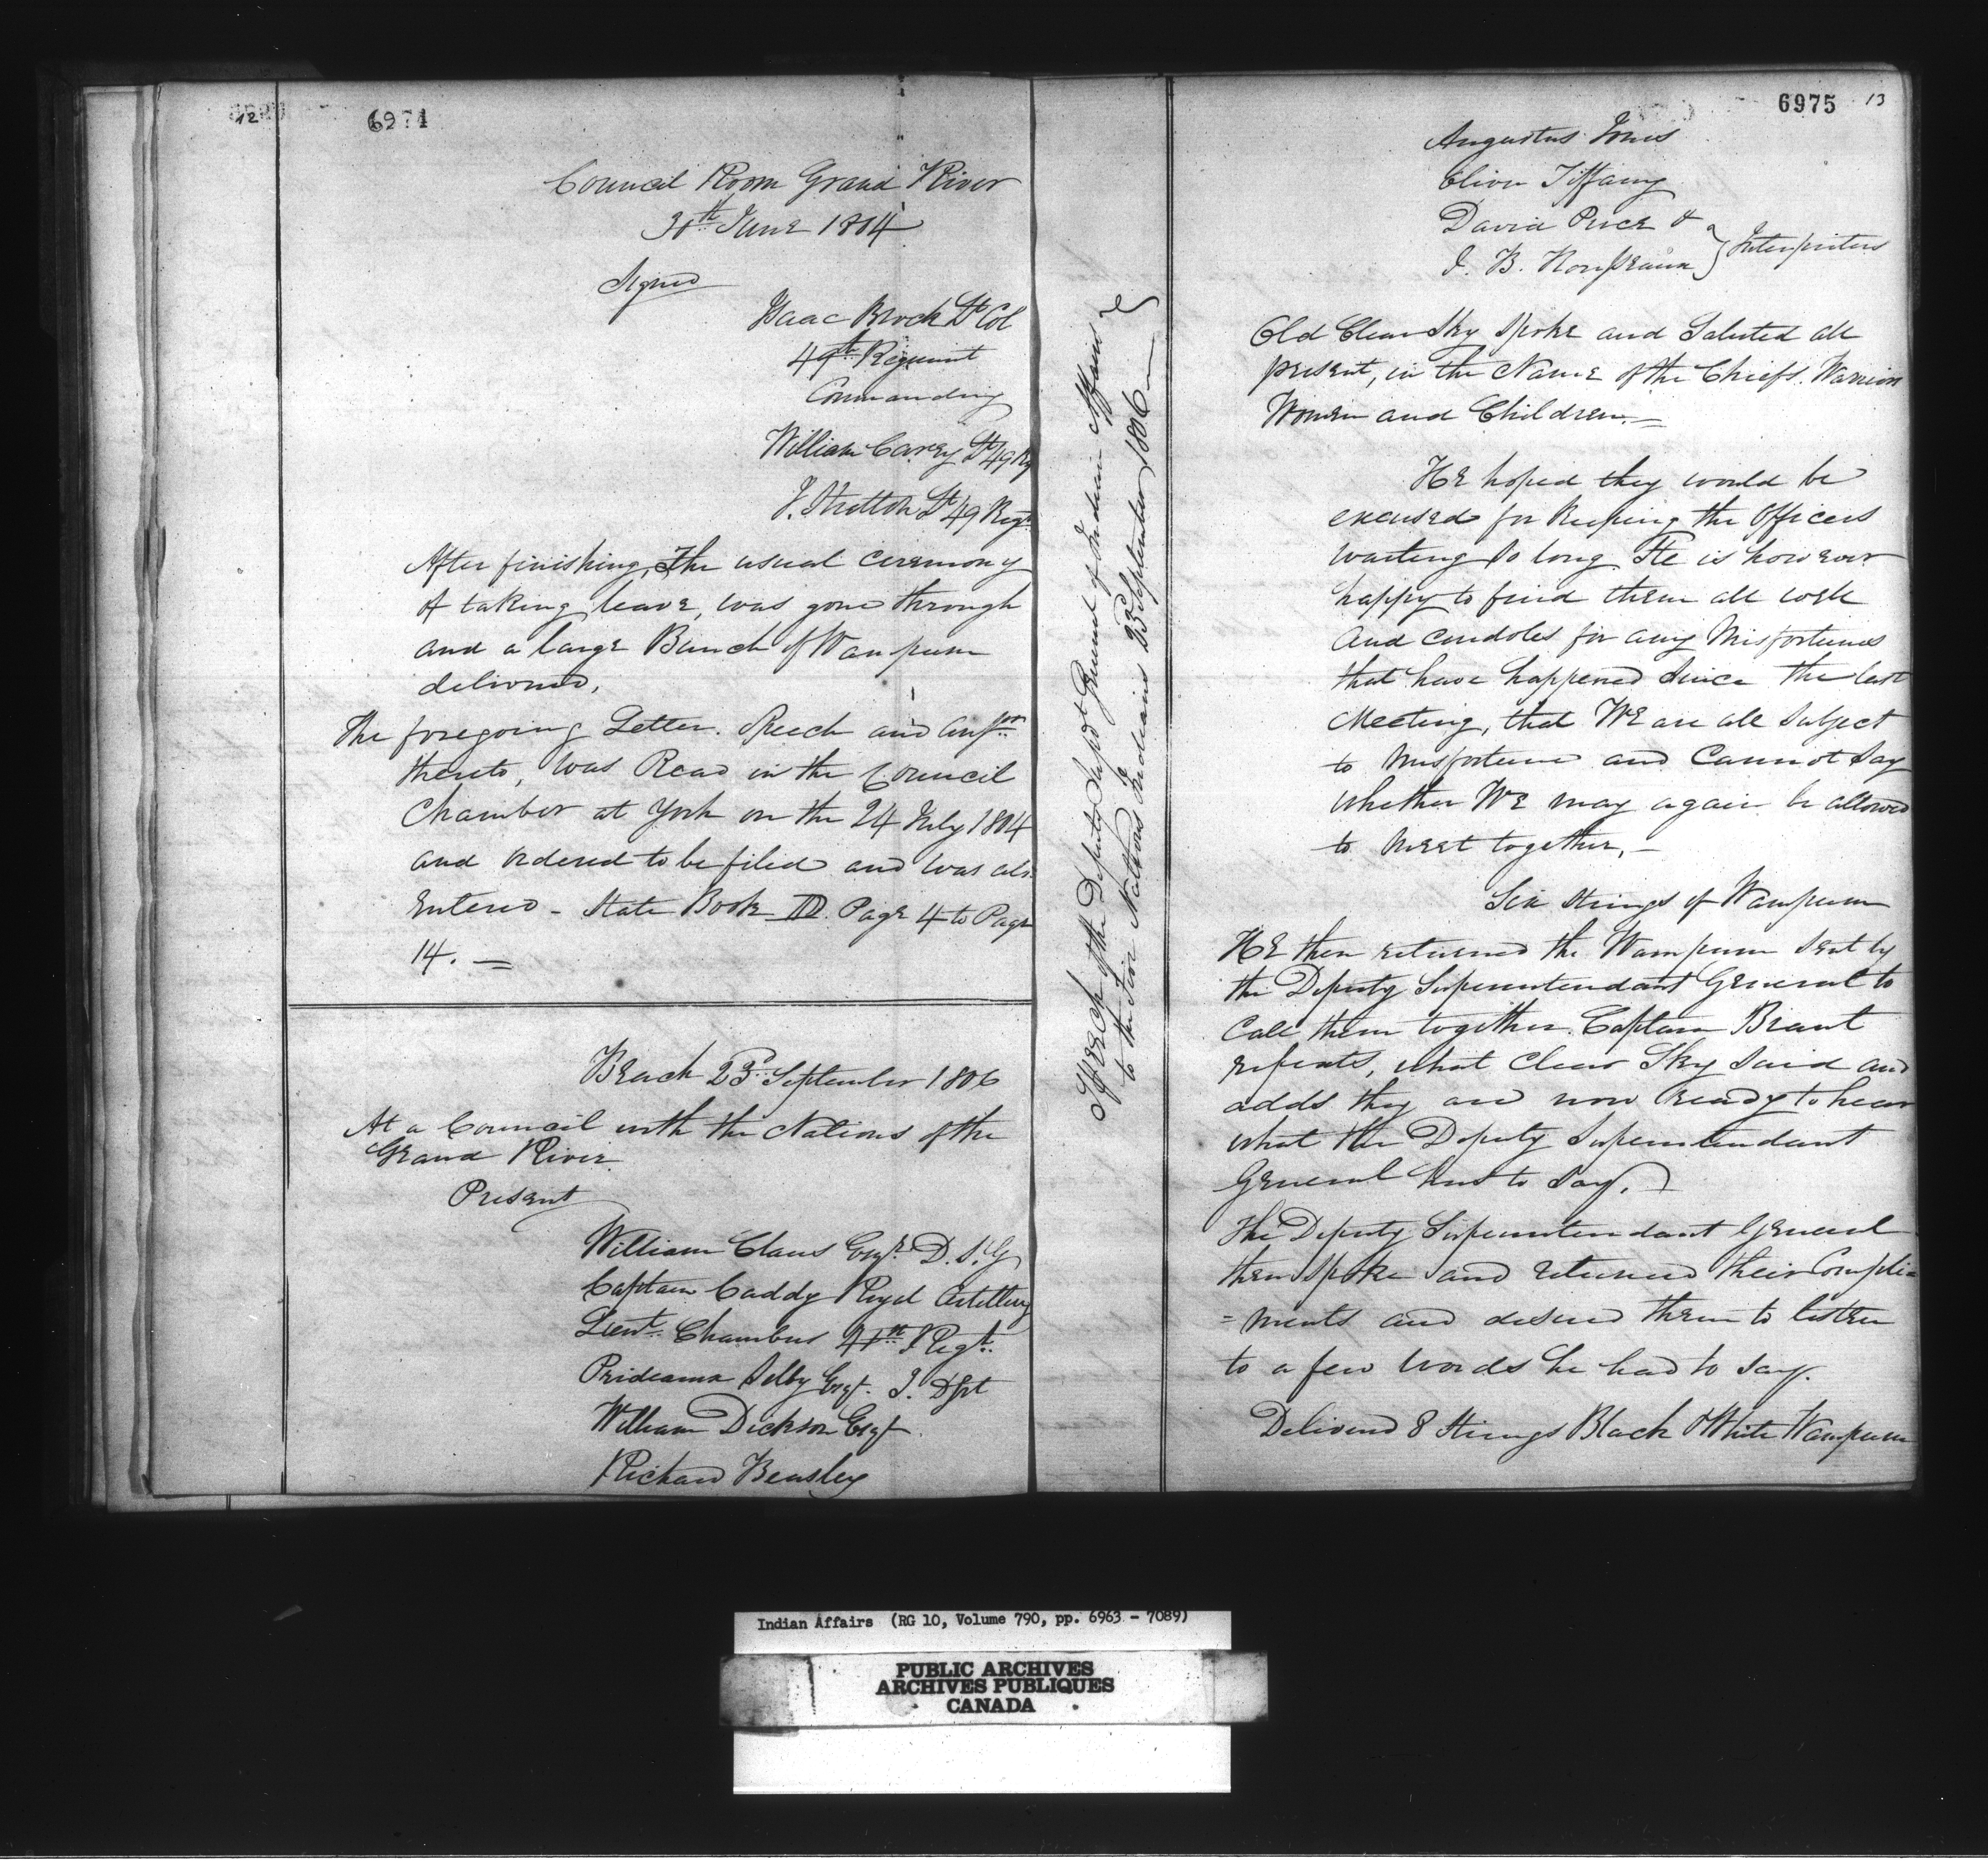 12
6974
Council Room Grand River
30th June 1804
Signed
Isaac Brock Lt Col
49th Regiment
Commanding
William Carey Lt 49 Rg
J. Stretton Lt 49 Regt
After finishing, The usual ceremony
of taking leave, was gone through
and a large Bunch of Wampum
delivered,
The foregoing Letter. Speech and ansrs
thereto, was Read in the Council
Chamber at York on the 24 July 1804
and ordered to be filed and was als
Entered - State Book D. Page 4 to Page
14. —
Beach 23d September 1806
At a Council with the Nations of the
Grand River.
Present
William Claus Esqr D.S.G
Captain Caddy Royal Artillery
Lieut. Chambers 41st Regt.
Prideaux Selby Esqr. I. Dpt
William Dickson Esqr
Richard Beasley
Speech of the Deputy Supdt General of Indian Affairs
to the Five Nations Indians 23d September 1806 —
6975 13
Augustus Jones
Oliver Tiffany
David Price &
J. B. Rousseaux } Interpreters
Old Clear Sky spoke and Saluted all
present, in the Name of the Chiefs. Warriors
Women and Children. —
He hoped they would be
excused for keeping the Officers
waiting so long. He is however
happy to find them all well
and condoles for any Misfortunes
that have happened since the last
Meeting, that We are all subject
to misfortune and Cannot say
whether We may again be allowed
to meet together, —
Six Strings of Wampum
He then returned the Wampum sent by
the Deputy Superintendant General to
Call them together. Captain Brant
repeats, what Clear Sky said and
adds they are now ready to hear
what the Deputy Superintendant
General has to say. —
The Deputy Superintendant General
then spoke and returned their Compli=
=ments and desired them to listen
to a few words he had to say.
Delivered 8 Strings Black & White Wampum
Indian Affairs (RG 10, Volume 790, pp. 6963 - 7089)
PUBLIC ARCHIVES
ARCHIVES PUBLIQUES
CANADA